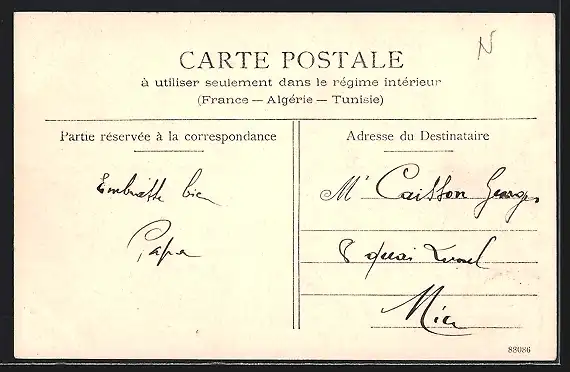 N
CARTE POSTALE
à utiliser seulement dans le régime intérieur
(France — Algérie — Tunisie)
Partie réservée à la correspondance
Adresse du Destinataire
Embrasse bien
Papa
Mr Caisson Georges
8 quai Lunel
Nice
88086